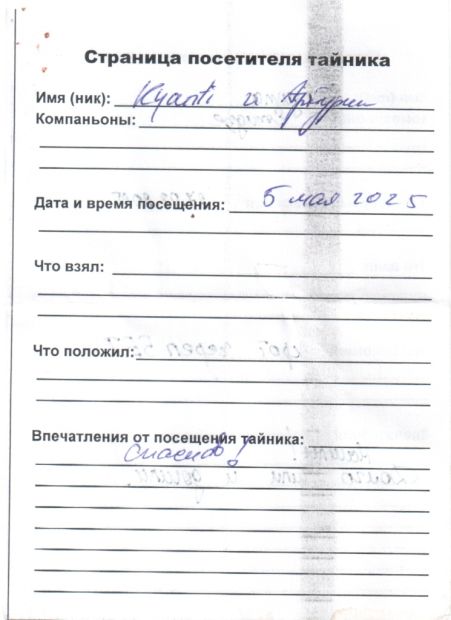 Страница посетителя тайника
Имя (ник): Kyanti и Артурик
Компаньоны:
Дата и время посещения: 5 мая 2025
Что взял:
Что положил:
Впечатления от посещения тайника:
спасибо!